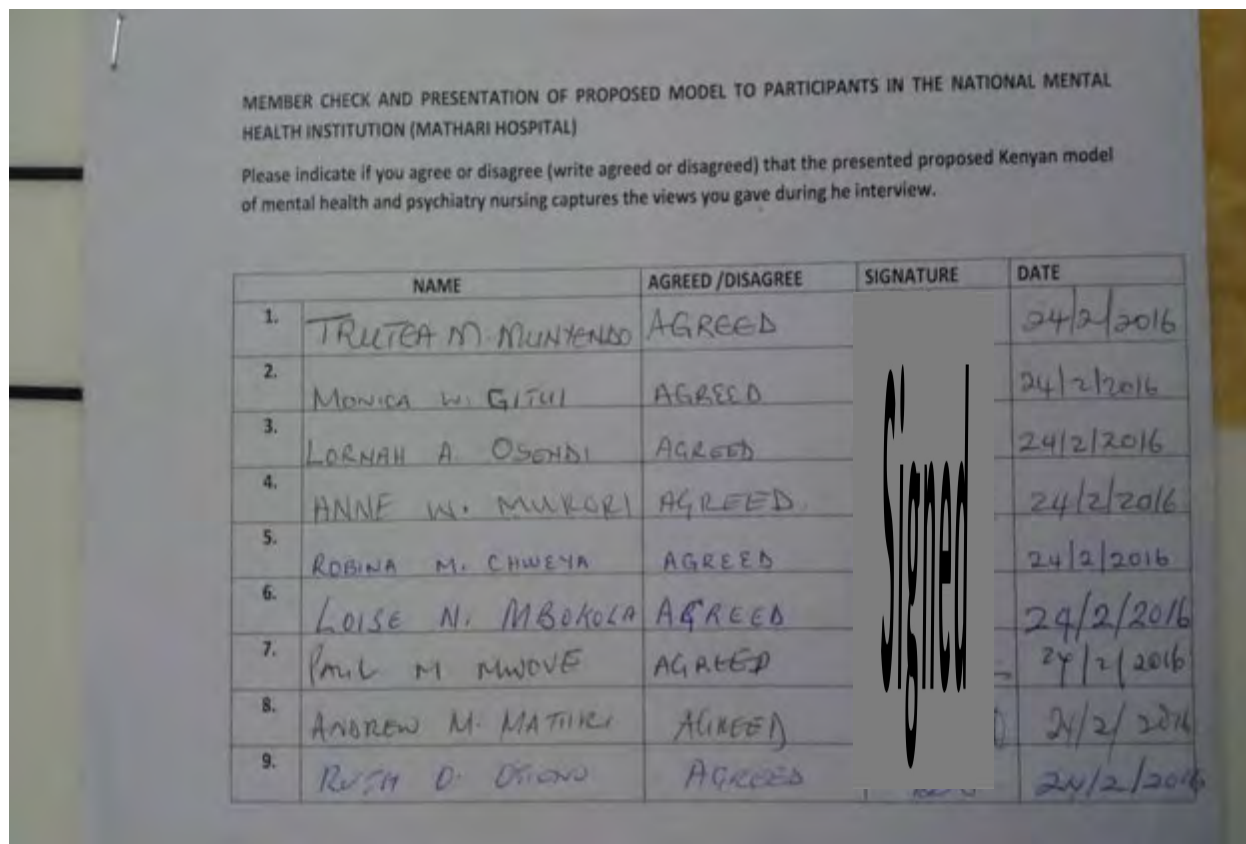 MEMBER CHECK AND PRESENTATION OF PROPOSED MODEL TO PARTICIPANTS IN THE NATIONAL MENTAL
HEALTH INSTITUTION (MATHARI HOSPITAL)
Please indicate if you agree or disagree (write agreed or disagreed) that the presented proposed Kenyan model
of mental health and psychiatry nursing captures the views you gave during he interview.
NAME AGREED /DISAGREE SIGNATURE DATE
1. M. MUNYENDO AGREED 24/2/2016
2. MONICA W. GITUI AGREED 24/2/2016
3. LORNAH A. OSENDI AGREED 24/2/2016
4. ANNE W. AGREED 24/2/2016
5. ROBINA M. CHWEYA AGREED 24/2/2016
6. LOISE N. MBOKOLA AGREED 24/2/2016
7. PAUL M MWOVE AGREED 24/2/2016
8. ANDREW M. AGREED 24/2/2016
9. RUTH O. AGREED 24/2/2016
Signed